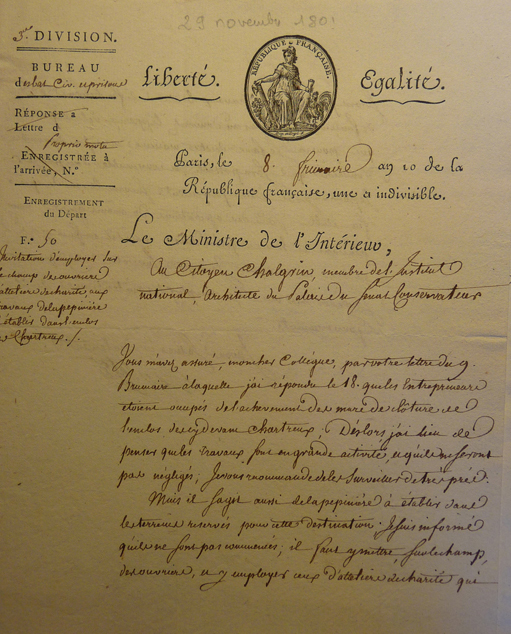 29 novembre 1801
3e DIVISION.
BUREAU
RÉPUBLIQUE FRANÇAISE.
Liberté.
Egalité.
RÉPONSE a
Lettre d
Proprio motu
ENREGISTRÉE à
l'arrivée, N.°
Paris, le 8. frimaire an 10 de la
République française, une et indivisible.
ENREGISTREMENT
du Départ
F.° 50
Le Ministre de l'Intérieur,
Invitation d'employer sur
le champ des ouvriers
d'atteliers de charité aux
travaux de la pepinière
à établir dans l'enclos
des Chartreux ./.
Au Citoyen Chalgrin, membre de l'Institut
national, architecte du Palais du Senat Conservateur
Vous m'avez assuré, mon cher Collègue, par votre lettre du 9.
Brumaire à laquelle j'ai répondu le 18. que les Entrepreneurs
etoient occupés de l'achevement des murs de clôture de
l'enclos des cydevant Chartreux. Dès lors j'ai lieu de
penser que les travaux sont en grande activité, et qu'ils ne seront
pas négligés. Je vous recommande de les surveiller de très près.
Mais il s'agit aussi de la pepinière à établir dans
les terreins reservés pour cette destination. Je suis informé
qu'ils ne sont pas commencés; il faut y mettre sur le champ,
des ouvriers, et y employer ceux d'atteliers de charité qui